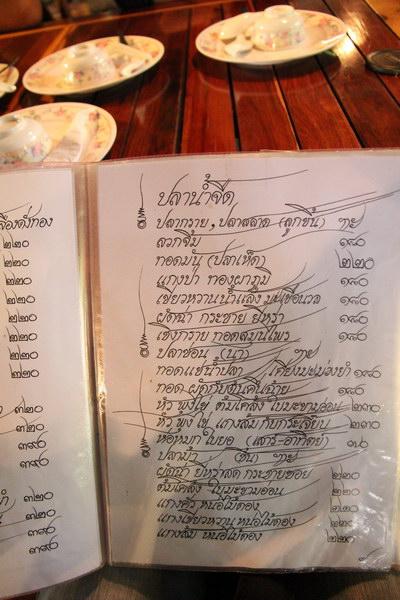 ๒๒๐
๒๒๐
๒๒๐
๒๒๐
๒๒๐
๒๒๐
๒๒๐
๓๒๐
๓๒๐
๓๙๐
๓๙๐
๓๒๐
๓๒๐
๓๙๐
ปลาน้ำจืด
ปลากราย, ปลาสลาด (ลูกชิ้น)
ลวกจิ้ม ๑๘๐
ทอดมัน (ปลาเห็ด) ๒๒๐
แกงป่า ทองผาภูมิ ๑๘๐
เขียวหวานน้ำแล้ง มะเขือนวล ๑๘๐
ผัดฉ่า กระชาย ยี่หร่า ๑๘๐
เชิงกราย ทอดสมุนไพร ๑๘๐
ปลาช่อน (นา)
ทอดแช่น้ำปลา ๑๘๐
ทอด ผัดกับต้นคื่นฉ่าย ๑๘๐
หัว พุงไข่ ต้มโคล้ง ใบมะขามอ่อน ๒๓๐
หัว พุง ไข่ แกงส้ม กับกระเจี๊ยบ ๒๓๐
ห่อหมก ใบยอ (เสาร์-อาทิตย์)
ปลาม้า (ชิ้น)
ผัดฉ่า ยี่หร่าสด กระชายซอย ๒๒๐
ต้มโคล้ง ใบมะขามอ่อน ๒๒๐
แกงคั่ว หน่อไม้ดอง ๒๒๐
แกงเขียวหวาน หน่อไม้ดอง ๒๒๐
แกงส้ม หน่อไม้ดอง ๒๒๐